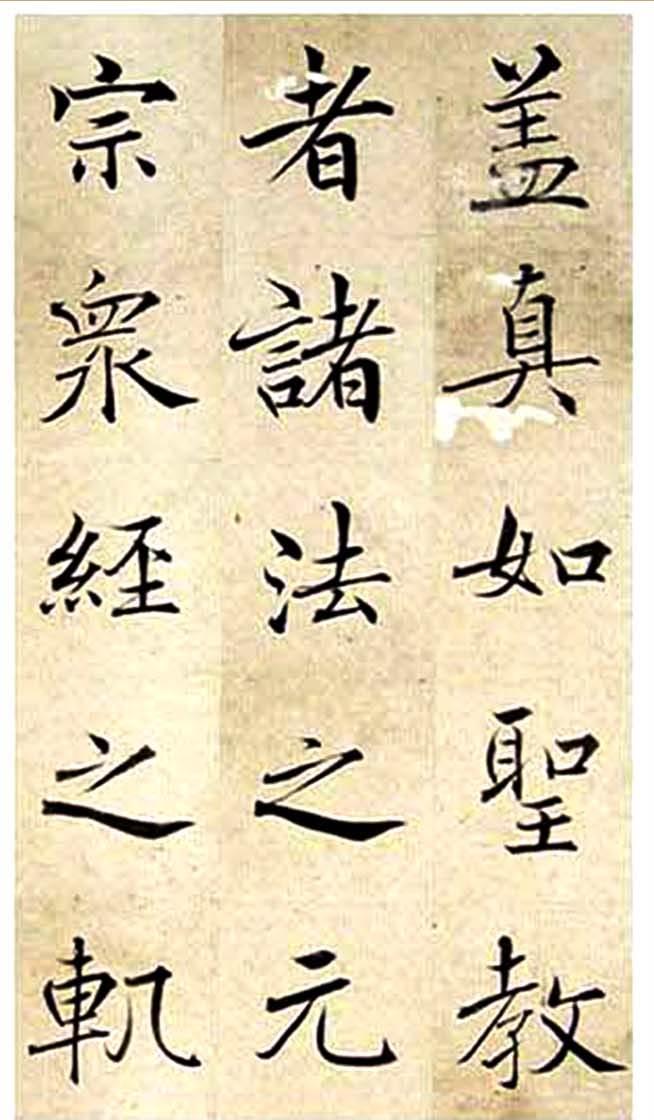 盖真如聖教
者諸法之元
宗衆經之軏